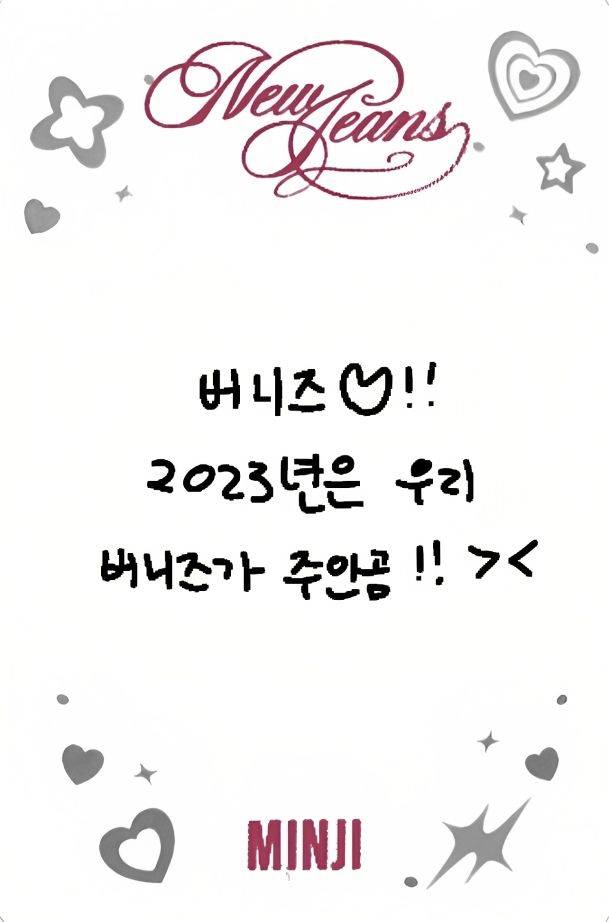 New Jeans
버니즈♡!!
2023년은 우리
버니즈가 주안곰!! ><
MINJI